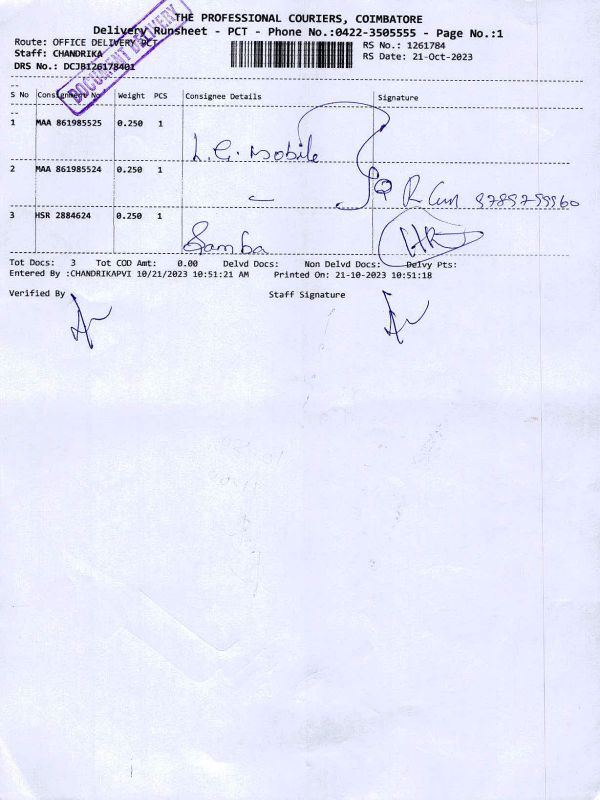 THE PROFESSIONAL COURIERS, COIMBATORE
Delivery Runsheet - PCT - Phone No.:0422-3505555 - Page No.:1
Route: OFFICE DELIVERY PCT
RS No.: 1261784
Staff: CHANDRIKA
RS Date: 21-Oct-2023
DRS No.: DCJB126178401
DOCUMENT DELIVERY
S No Consignment No Weight PCS Consignee Details Signature
1 MAA 861985525 0.250 1
L.G. Mobile
2 MAA 861985524 0.250 1
3 HSR 2884624 0.250 1
Samba
Tot Docs: 3 Tot COD Amt: 0.00 Delvd Docs: Non Delvd Docs: Delvy Pts:
Entered By :CHANDRIKAPVI 10/21/2023 10:51:21 AM Printed On: 21-10-2023 10:51:18
Verified By Staff Signature